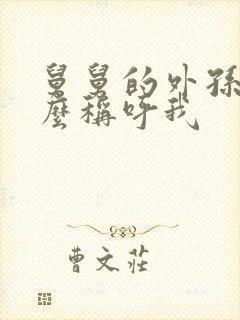 舅舅的外孫
麼稱呼我
曹文莊